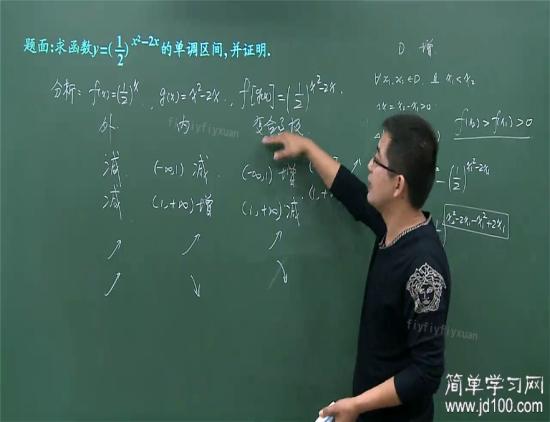 题面:求函数y=(1/2)^(x²-2x)的单调区间,并证明.
分析: f(x)=(1/2)^x, g(x)=x²-2x, f[g(x)]=(1/2)^(x²-2x).
外 内
减 (-∞,1) 减 (-∞,1) 增
减 (1,+∞) 增 (1,+∞) 减
↗ ↗ ↗
↗ ↘ ↘
D 增
∀x₁,x₂∈D, 且 x₁<x₂
f(x₂)>f(x₁)>0
-(1/2)^(x₁²-2x₁)
x₂²-2x₂-x₁²+2x₁
fiyfiyfiyxuan
fiyfiyfiyxuan
简单学习网
www.jd100.com